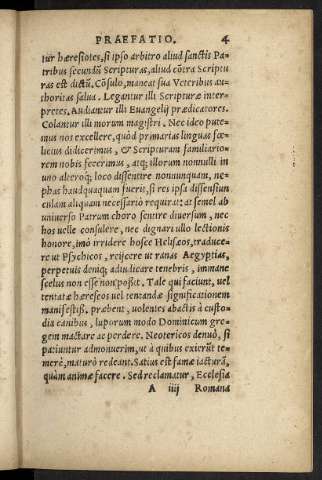 PRAEFATIO. 4
tur hæresiotes, si ipso arbitro aliud sanctis Pa-
tribus secundũ Scripturas, aliud cõtra Scriptu
ras est dictũ. Cõsulo, maneat sua Veteribus au-
thoritas salua. Legantur illi Scripturæ inter-
pretes. Audiantur illi Euangelij prædicatores.
Colantur illi morum magistri. Nec ideo pute-
mus nos excellere, quòd primarias linguas fœ-
licius didicerimus, & Scripturam familiario-
rem nobis fecerimus, atq; illorum nonnulli in
uno alteroq; loco dissentire nonnunquam, ne-
phas haudquaquam fueris, si res ipsa dissensiun
culam aliquam necessariò requirat: at semel ab
uniuerso Patrum choro sentire diuersum, nec
hos uelle consulere, nec dignari ullo lectionis
honore, imò irridere hosce Helisæos, traduce-
re ut Psychicos, reijcere ut ranas Aegyptias,
perpetuis deniq; adiudicare tenebris, immane
scelus non esse non possit. Tale qui faciunt, uel
tentatæ hæreseos uel tentandæ significationem
manifestiss. præbent, uolentes abactis à custo-
dia canibus, luporum modo Dominicum gre-
gem mactare ac perdere. Neotericos denuò, si
patiuntur admonuerim, ut à quibus exierũt te-
merè, maturò redeant. Satius est famæ iacturã,
quàm animæ facere. Sed reclamatur, Ecclesia
A iiij Romana